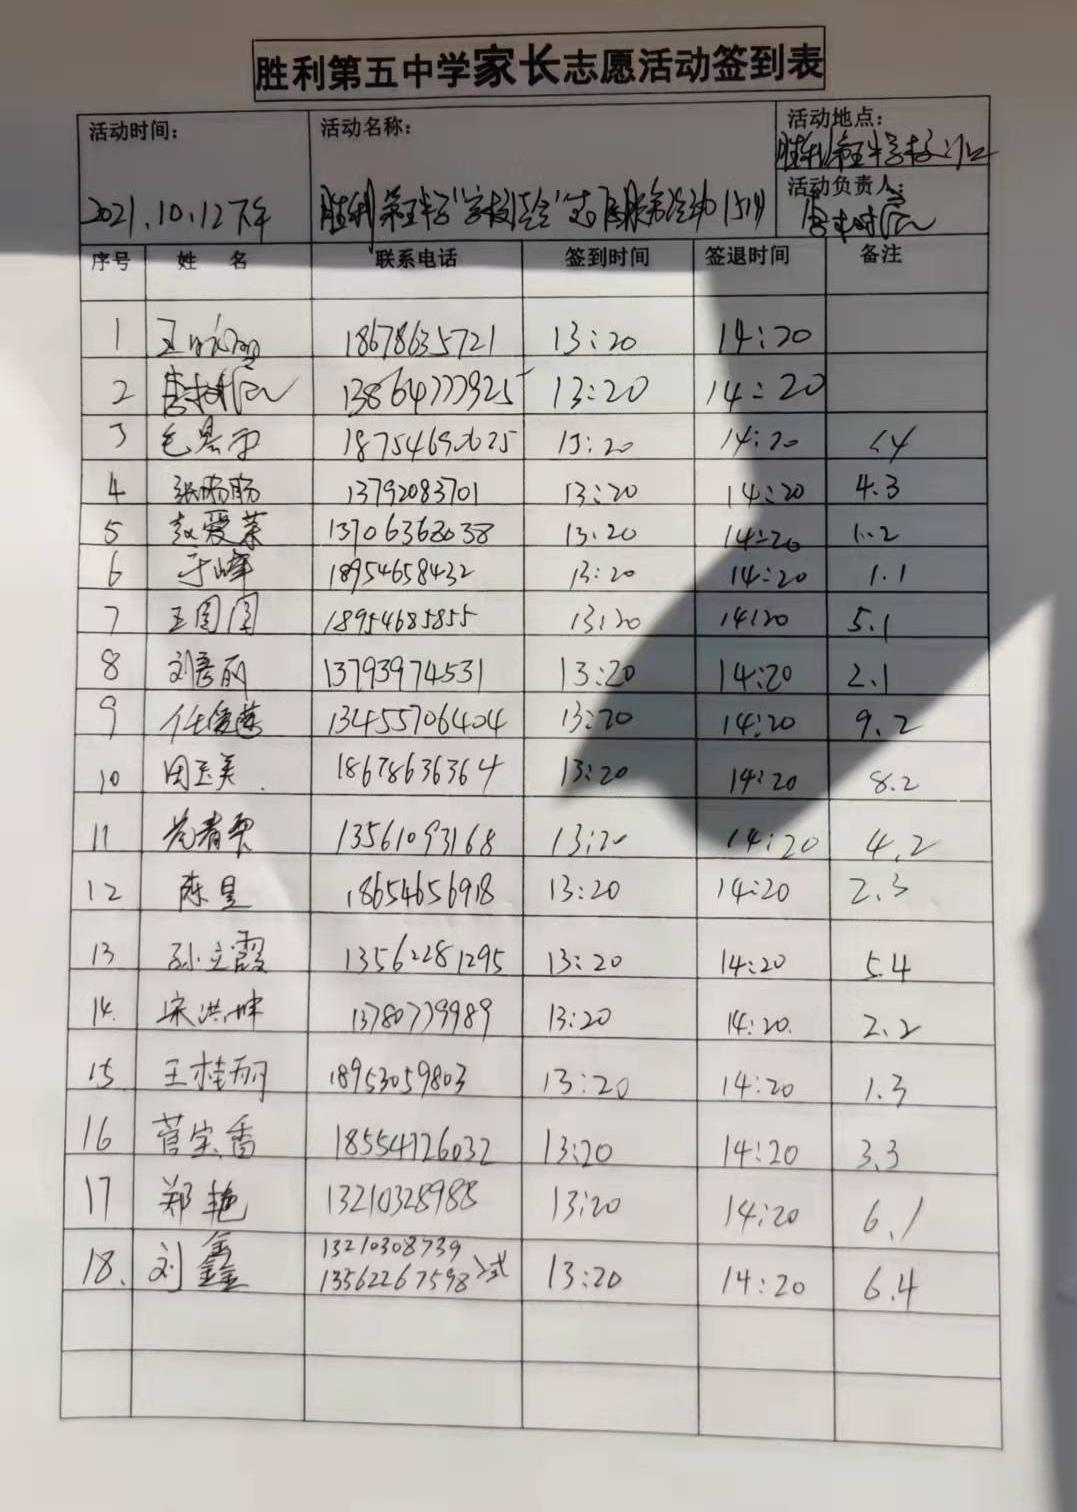 胜利第五中学家长志愿活动签到表
活动时间： 活动名称： 活动地点：
胜利第五中学校门口
活动负责人：
2021.10.12下午 胜利第五中学"学校 "志愿服务活动
序号 姓 名 联系电话 签到时间 签退时间 备注
1 王 18678635721 13:20 14:20
2 13864777925 13:20 14:20
3 毛 18754690625 13:20 14:20
4 张 13792083701 13:20 14:20 4.3
5 赵爱菜 13706368038 13:20 14:20 1.2
6 于峰 18954658432 13:20 14:20 1.1
7 王园园 18954685855 13:20 14:20 5.1
8 刘彦丽 13793974531 13:20 14:20 2.1
9 任俊莲 13455706404 13:20 14:20 9.2
10 田玉美 18678636364 13:20 14:20 8.2
11 13561093168 13:20 14:20 4.2
12 陈昱 18654656918 13:20 14:20 2.3
13 孙立霞 13562281295 13:20 14:20 5.4
14. 宋洪坤 13780779989 13:20 14:20. 2.2
15 王桂丽 18953059803 13:20 14:20 1.3
16 菅宝香 18554726032 13:20 14:20 3.3
17 郑艳 13210328988 13:20 14:20 6.1
18. 刘鑫 13210308739 13562267598 13:20 14:20 6.4